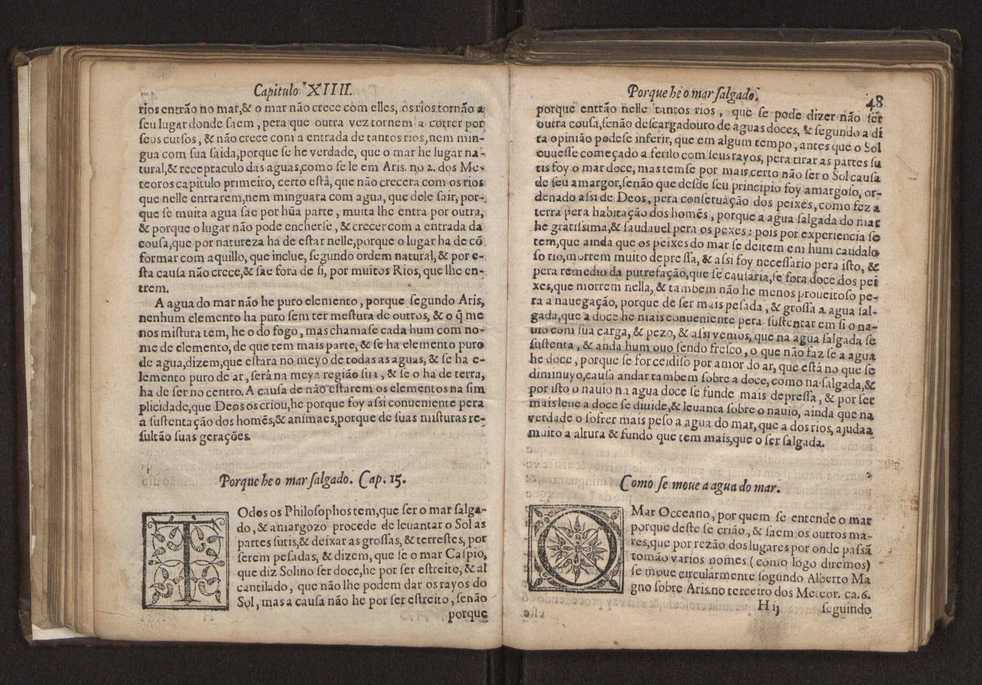 Capitulo XIIII.
rios entrão no mar,& o mar não crece com elles, os rios tornão a
seu lugar donde saem, pera que outra vez tornem a correr por
seus cursos, & não crece com a entrada de tantos rios,nem min-
gua com sua saida,porque se he verdade, que o mar he lugar na-
tural,& receptaculo das aguas,como se le em Aris. no 2. dos Me-
teoros capitulo primeiro, certo está, que não crecera com os rios
que nelle entrarem,nem minguara com agua, que dele sair, por-
que se muita agua sae por hũa parte, muita lhe entra por outra,
& porque o lugar não pode encherse, & crecer com a entrada da
cousa,que por natureza ha de estar nelle,porque o lugar ha de cõ
formar com aquillo, que inclue, segundo ordem natural, & por e-
sta causa não crece,& sae fora de si, por muitos Rios, que lhe en-
trem.
A agua do mar não he puro elemento, porque segundo Aris,
nenhum elemento ha puro sem ter mestura de outros, & o q̃ me
nos mistura tem, he o do fogo, mas chamase cada hum com no-
me de elemento, de que tem mais parte, & se ha elemento puro
de agua,dizem,que estara no meyo de todas as aguas, & se ha e-
lemento puro de ar, será na meya região sua, & se o ha de terra,
ha de ser no centro. A causa de não estarem os elementos na sim
plicidade,que Deos os criou,he porque foy assi conueniente pera
a sustentação dos homẽs,& animaes,porque de suas misturas re-
sultão suas gerações.
Porque he o mar salgado. Cap. 15.
TOdos os Philosophos tem,que ser o mar salga-
do, & amargozo procede de leuantar o Sol as
partes sutis,& deixar as grossas, & terrestes, por
serem pesadas, & dizem, que se o mar Caspio,
que diz Solino ser doce,he por ser estreito, & al
cantilado, que não lhe podem dar os rayos do
Sol, mas a causa não he por ser estreito, senão
porque
Porque he o mar salgado. 48
porque entrão nelle tantos rios, que se pode dizer não ser
outra cousa,senão descargadouro de aguas doces, & segundo a di
ta opinião podese inferir, que em algum tempo, antes que o Sol
ouuesse começado a ferilo com seus rayos, pera tirar as partes su
tis foy o mar doce, mas temse por mais certo não ser o Sol causa
de seu amargor,senão que desde seu principio foy amargoso, or-
denado assi de Deos, pera conseruação dos peixes, como fez a
terra pera habitação dos homẽs, porque a agua salgada do mar
he gratissima,& saudauel pera os pexes: pois por experiencia se
tem,que ainda que os peixes do mar se deitem em hum caudalo
so rio,morrem muito depressa, & assi foy necessario pera isto, &
pera remedio da putrefação,que se causaria,se fora doce dos pei
xes,que morrem nella, & tambem não he menos proueitoso pe-
ra a nauegação, porque de ser mais pesada, & grossa a agua sal-
gada,que a doce he mais conueniente pera sustentar em si o na-
uio com sua carga, & pezo, & assi vemos, que na agua salgada se
sustenta, & anda hum ouo sendo fresco, o que não faz se a agua
he doce, porque se for cedisso por amor do ar, que está no que se
diminuyo,causa andar tambem sobre a doce, como na salgada,&
por isto o nauio na agua doce se funde mais depressa, & por ser
mais leue a doce se diuide,& leuanta sobre o nauio, ainda que na
verdade o sofrer mais peso a agua do mar, que a dos rios, ajuda a
muito a altura & fundo que tem mais,que o ser salgada.
Como se moue a agua do mar.
O Mar Occeano, por quem se entende o mar
porque deste se crião, & saem os outros ma-
res,que por rezão dos lugares por onde passã
tomão varios nomes (como logo diremos)
se moue circularmente segundo Alberto Ma
gno sobre Aris.no terceiro dos Meteor. ca. 6.
H ij seguindo